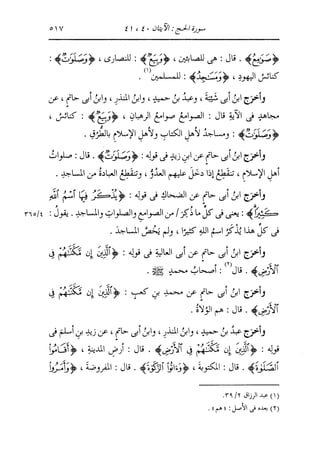 سورة الحج : الآيتان ٤٠ ، ٤١
٥١٧
﴿صَوَٰمِعُ﴾ . قال : هى للصابئين ، ﴿وَبِيَعٌ﴾ : للنصارى ، ﴿وَصَلَوَٰتٌ﴾ :
كنائس اليهود ، ﴿وَمَسَٰجِدُ﴾ : للمسلمين(١) .
وأخرَج ابنُ أبى شَيْبَةَ ، وعبدُ بنُ حميدٍ ، وابنُ المنذرِ ، وابنُ أبى حاتمٍ ، عن
مجاهدٍ فى الآيةِ قال : الصوامعُ صوامعُ الرهبانِ ، ﴿وَبِيَعٌ﴾ : كنائس ،
﴿وَصَلَوَٰتٌ﴾ : ومساجدُ لأهلِ الكتابِ ولأهلِ الإسلامِ بالطُّرُقِ .
وأخرَج ابنُ أبى حاتمٍ عن ابنِ زيدٍ فى قولِه : ﴿وَصَلَوَٰتٌ﴾ . قال : صلواتُ
أهلِ الإسلامِ ، تنقطِعُ إذا دخَل عليهم العدوُّ ، وتنقطِعُ العبادةُ من المساجدِ .
وأخرَج ابنُ أبى حاتمٍ عن الضحاكِ فى قولِه : ﴿يُذْكَرُ فِيهَا ٱسْمُ ٱللَّهِ
كَثِيرًا﴾ : يعنى فى كلِّ ما ذُكِرَ / من الصوامعِ والصلواتِ والمساجدِ . يقولُ : ٣٦٥/٤
فى كلِّ هذا يُذكَرُ اسمُ اللهِ كثيرًا ، ولم يَخُصَّ المساجدَ .
وأخرَج ابنُ أبى حاتمٍ عن أبى العاليةِ فى قولِه : ﴿ٱلَّذِينَ إِن مَّكَّنَّٰهُمْ فِى
ٱلْأَرْضِ﴾ . قال(٢) : أصحابُ محمدٍ ﷺ .
وأخرَج ابنُ أبى حاتمٍ عن محمدِ بنِ كعبٍ : ﴿ٱلَّذِينَ إِن مَّكَّنَّٰهُمْ فِى
ٱلْأَرْضِ﴾ . قال : هم الوُلاةُ .
وأخرَج عبدُ بنُ حميدٍ ، وابنُ المنذرِ ، وابنُ أبى حاتمٍ ، عن زيدِ بنِ أسلمَ فى
قولِه : ﴿ٱلَّذِينَ إِن مَّكَّنَّٰهُمْ فِى ٱلْأَرْضِ﴾ . قال : أرضِ المدينةِ ، ﴿أَقَامُوا۟
ٱلصَّلَوٰةَ﴾ . قال : المكتوبةَ ، ﴿وَءَاتَوُا۟ ٱلزَّكَوٰةَ﴾ . قال : المفروضةَ ، ﴿وَأَمَرُوا۟
(١) عبد الرزاق ٣٩/٢ .
(٢) بعده فى الأصل : « هم » .